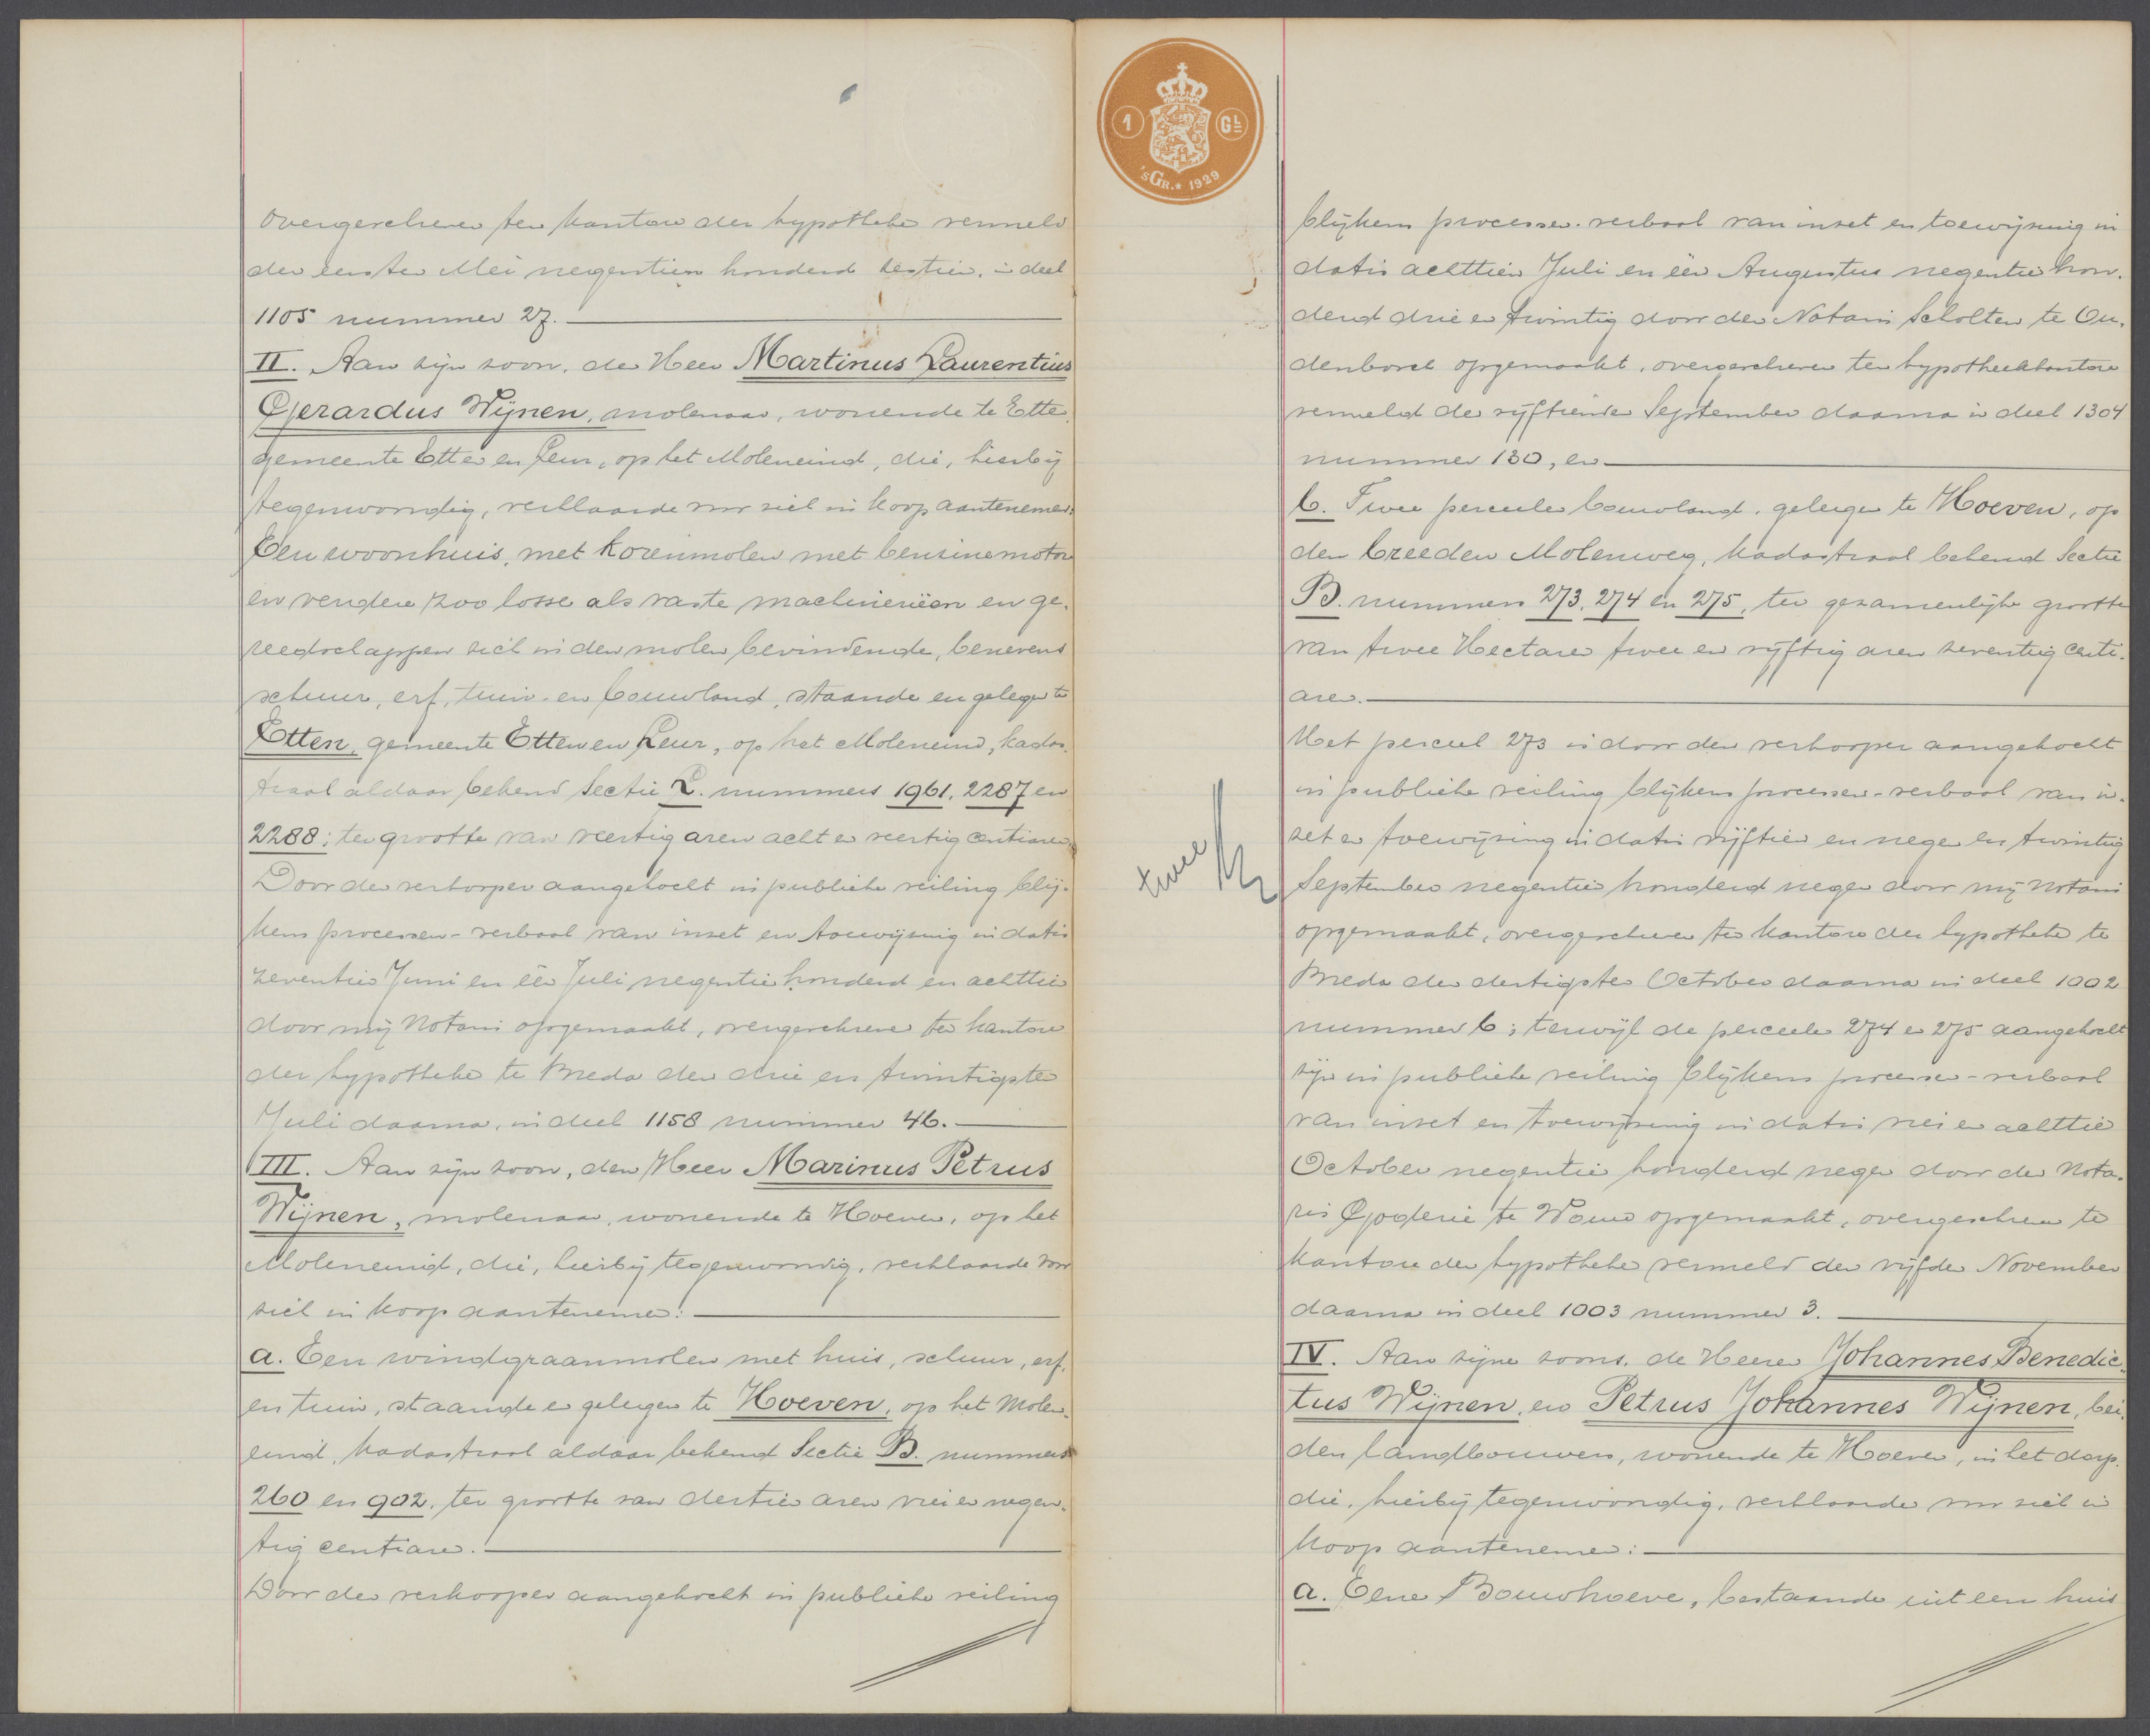 overgeschreven ten kantore der hypotheken vermeld
den eersten Mei negentien honderd zestien, in deel
1105 nummer 27.
II. Aan zijn zoon, den Heer Martinus Laurentius
Gerardus Wijnen, molenaar, wonende te Etten
gemeente Etten en Leur, op het Moleneind, die, hierbij
tegenwoordig, verklaarde voor zich in koop aantenemen:
Een woonhuis, met korenmolen met bensinemotor
en verdere zoo losse als vaste machinerieën en ge-
reedschappen zich in den molen bevindende, benevens
schuur, erf, tuin- en bouwland, staande en gelegen te
Etten, gemeente Etten en Leur, op het Moleneind, kadas-
traal aldaar bekend Sectie L. nummers 1961, 2287 en
2288; ter grootte van veertig aren acht en veertig centiaren
Door den verkooper aangekocht in publieke veiling blij-
kens processen-verbaal van inzet en toewijzing in datis
zeventien Juni en één Juli negentien honderd en achttien
door mij Notaris opgemaakt, overgeschreven ten kantore
der hypotheken te Breda den drie en twintigsten
Juli daarna, in deel 1158 nummer 46.
III. Aan zijn zoon, den Heer Marinus Petrus
Wijnen, molenaar, wonende te Hoeven, op het
Moleneind, die, hierbij tegenwoordig, verklaarde voor
zich in koop aantenemen:
a. Een windgraanmolen met huis, schuur, erf,
en tuin, staande en gelegen te Hoeven, op het Molen-
eind, kadastraal aldaar bekend Sectie B. nummers
260 en 902, ter grootte van dertien aren vier en negen-
tig centiaren.
Door den verkooper aangekocht in publieke veiling
'sGR.* 1929
1 GL
blijkens processen-verbaal van inzet en toewijzing in
datis achttien Juli en één Augustus negentien hon-
derd drie en twintig door den Notaris Scholten te Ou-
denbosch opgemaakt, overgeschreven ten hypotheekkantore
vermeld den vijftienden September daarna in deel 1304
nummer 130, en
b. Twee perceelen bouwland, gelegen te Hoeven, op
den breeden Molenweg, kadastraal bekend Sectie
B. nummers 273, 274 en 275, ter gezamenlijke grootte
van twee Hectaren twee en vijftig aren zeventig centi-
aren.
Het perceel 273 is door den verkooper aangekocht
in publieke veiling blijkens processen-verbaal van in-
zet en toewijzing in datis vijftien en negen en twintig
twee
September negentien honderd negen door mij Notaris
opgemaakt, overgeschreven ten kantore der hypotheken te
Breda den dertigsten October daarna in deel 1002
nummer 6; terwijl de perceelen 274 en 275 aangekocht
zijn in publieke veiling blijkens processen-verbaal
van inzet en toewijzing in datis vier en achttien
October negentien honderd negen door den Nota-
ris Goderie te Wouw opgemaakt, overgeschreven ten
kantore der hypotheken vermeld den vijfden November
daarna in deel 1003 nummer 3.
IV. Aan zijne zoons, de Heeren Johannes Benedic-
tus Wijnen, en Petrus Johannes Wijnen, bei-
den landbouwers, wonende te Hoeven, in het dorp,
die, hierbij tegenwoordig, verklaarden voor zich in
koop aantenemen:
a. Eene Bouwhoeve, bestaande uit een huis